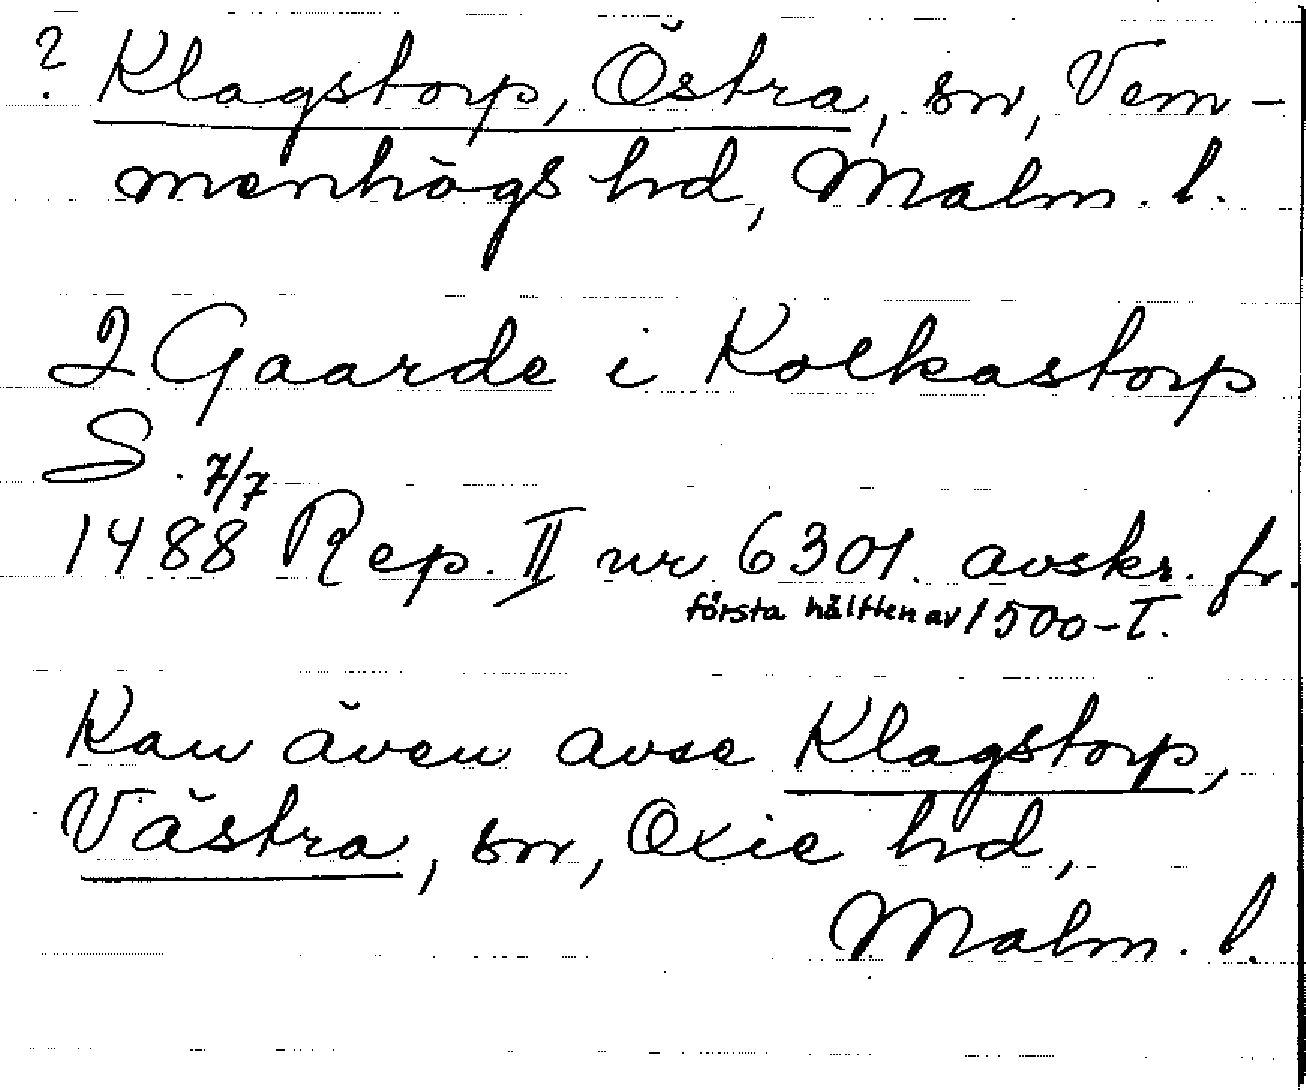 ? Klagstorp, Östra, sn, Vem-
menhögs hd, Malm. l.
2 Gaarde i Kolkastorp
S. 7/7
1488 Rep. II nr 6301. avskr. fr.
första hälften av 1500-T.
Kan även avse Klagstorp,
Västra, sn, Oxie hd,
Malm. l.